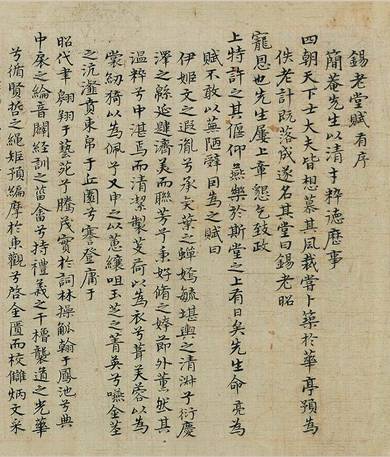 錫老堂賦有序
簡菴先生以清才粹德歷事
四朝天下士大夫皆想慕其風裁嘗卜築於華亭預為
佚老計既落成遂名其堂曰錫老昭
寵恩也先生屢上章懇乞致政
上特許之其傴仰燕樂於斯堂之上有日矣先生命亮為
賦不敢以蕪陋辭因為之賦曰
伊姬文之遐胤兮承奕葉之蟬嫣毓堪輿之清淑兮衍慶
澤之緜延濟美而聮芳兮秉姱脩之婞節外薰然其
溫粹兮中湛焉而清潔製芰荷以為衣兮葺芙蓉以為
裳紉猗以為佩兮又申之以蕙纕咀玉芝之菁英兮嚥金莖
之沆瀣賁束帛于丘園兮謇登庸于
昭代聿翱翔于藝苑兮騰茂實於詞林操觚翰于鳳池兮典
中秘之綸音闢經訓之菑畬兮持禮義之干櫓襲道之光華
兮循賢哲之繩矩預編摩於東觀兮啓金匱而校讎炳文采